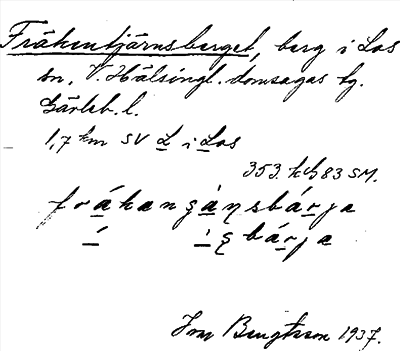 Fräkentjärnsberget, berg i Los
sn, V. Hälsingl. domsagas tg.
Gävleb. l.
1,7 km SV L i Los
353. h. G 83 SM.
fråkanʂàɳsbárja
Ivar Bengtsson 1937.